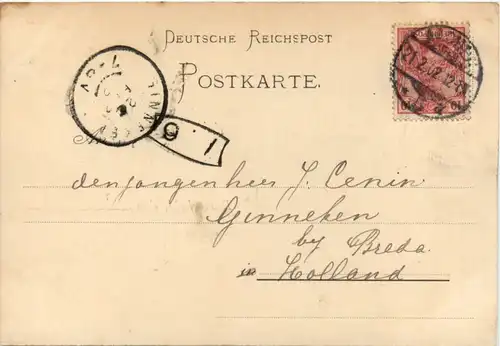 DEUTSCHE REICHSPOST
POSTKARTE.
den jongen heer J. Cenin
Ginneken
by Breda.
in Holland